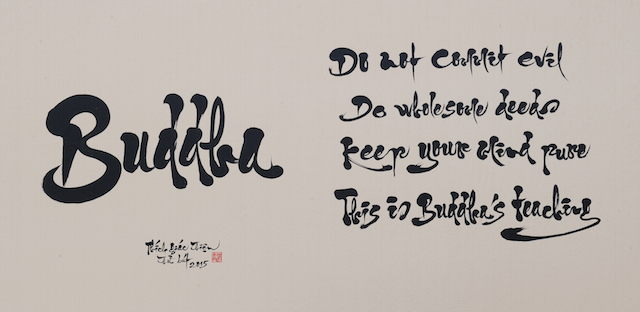 Buddha
Do not commit evil
Do wholesome deeds
Keep your mind pure
This is Buddha's teaching
Thích Giác Thiện
2015